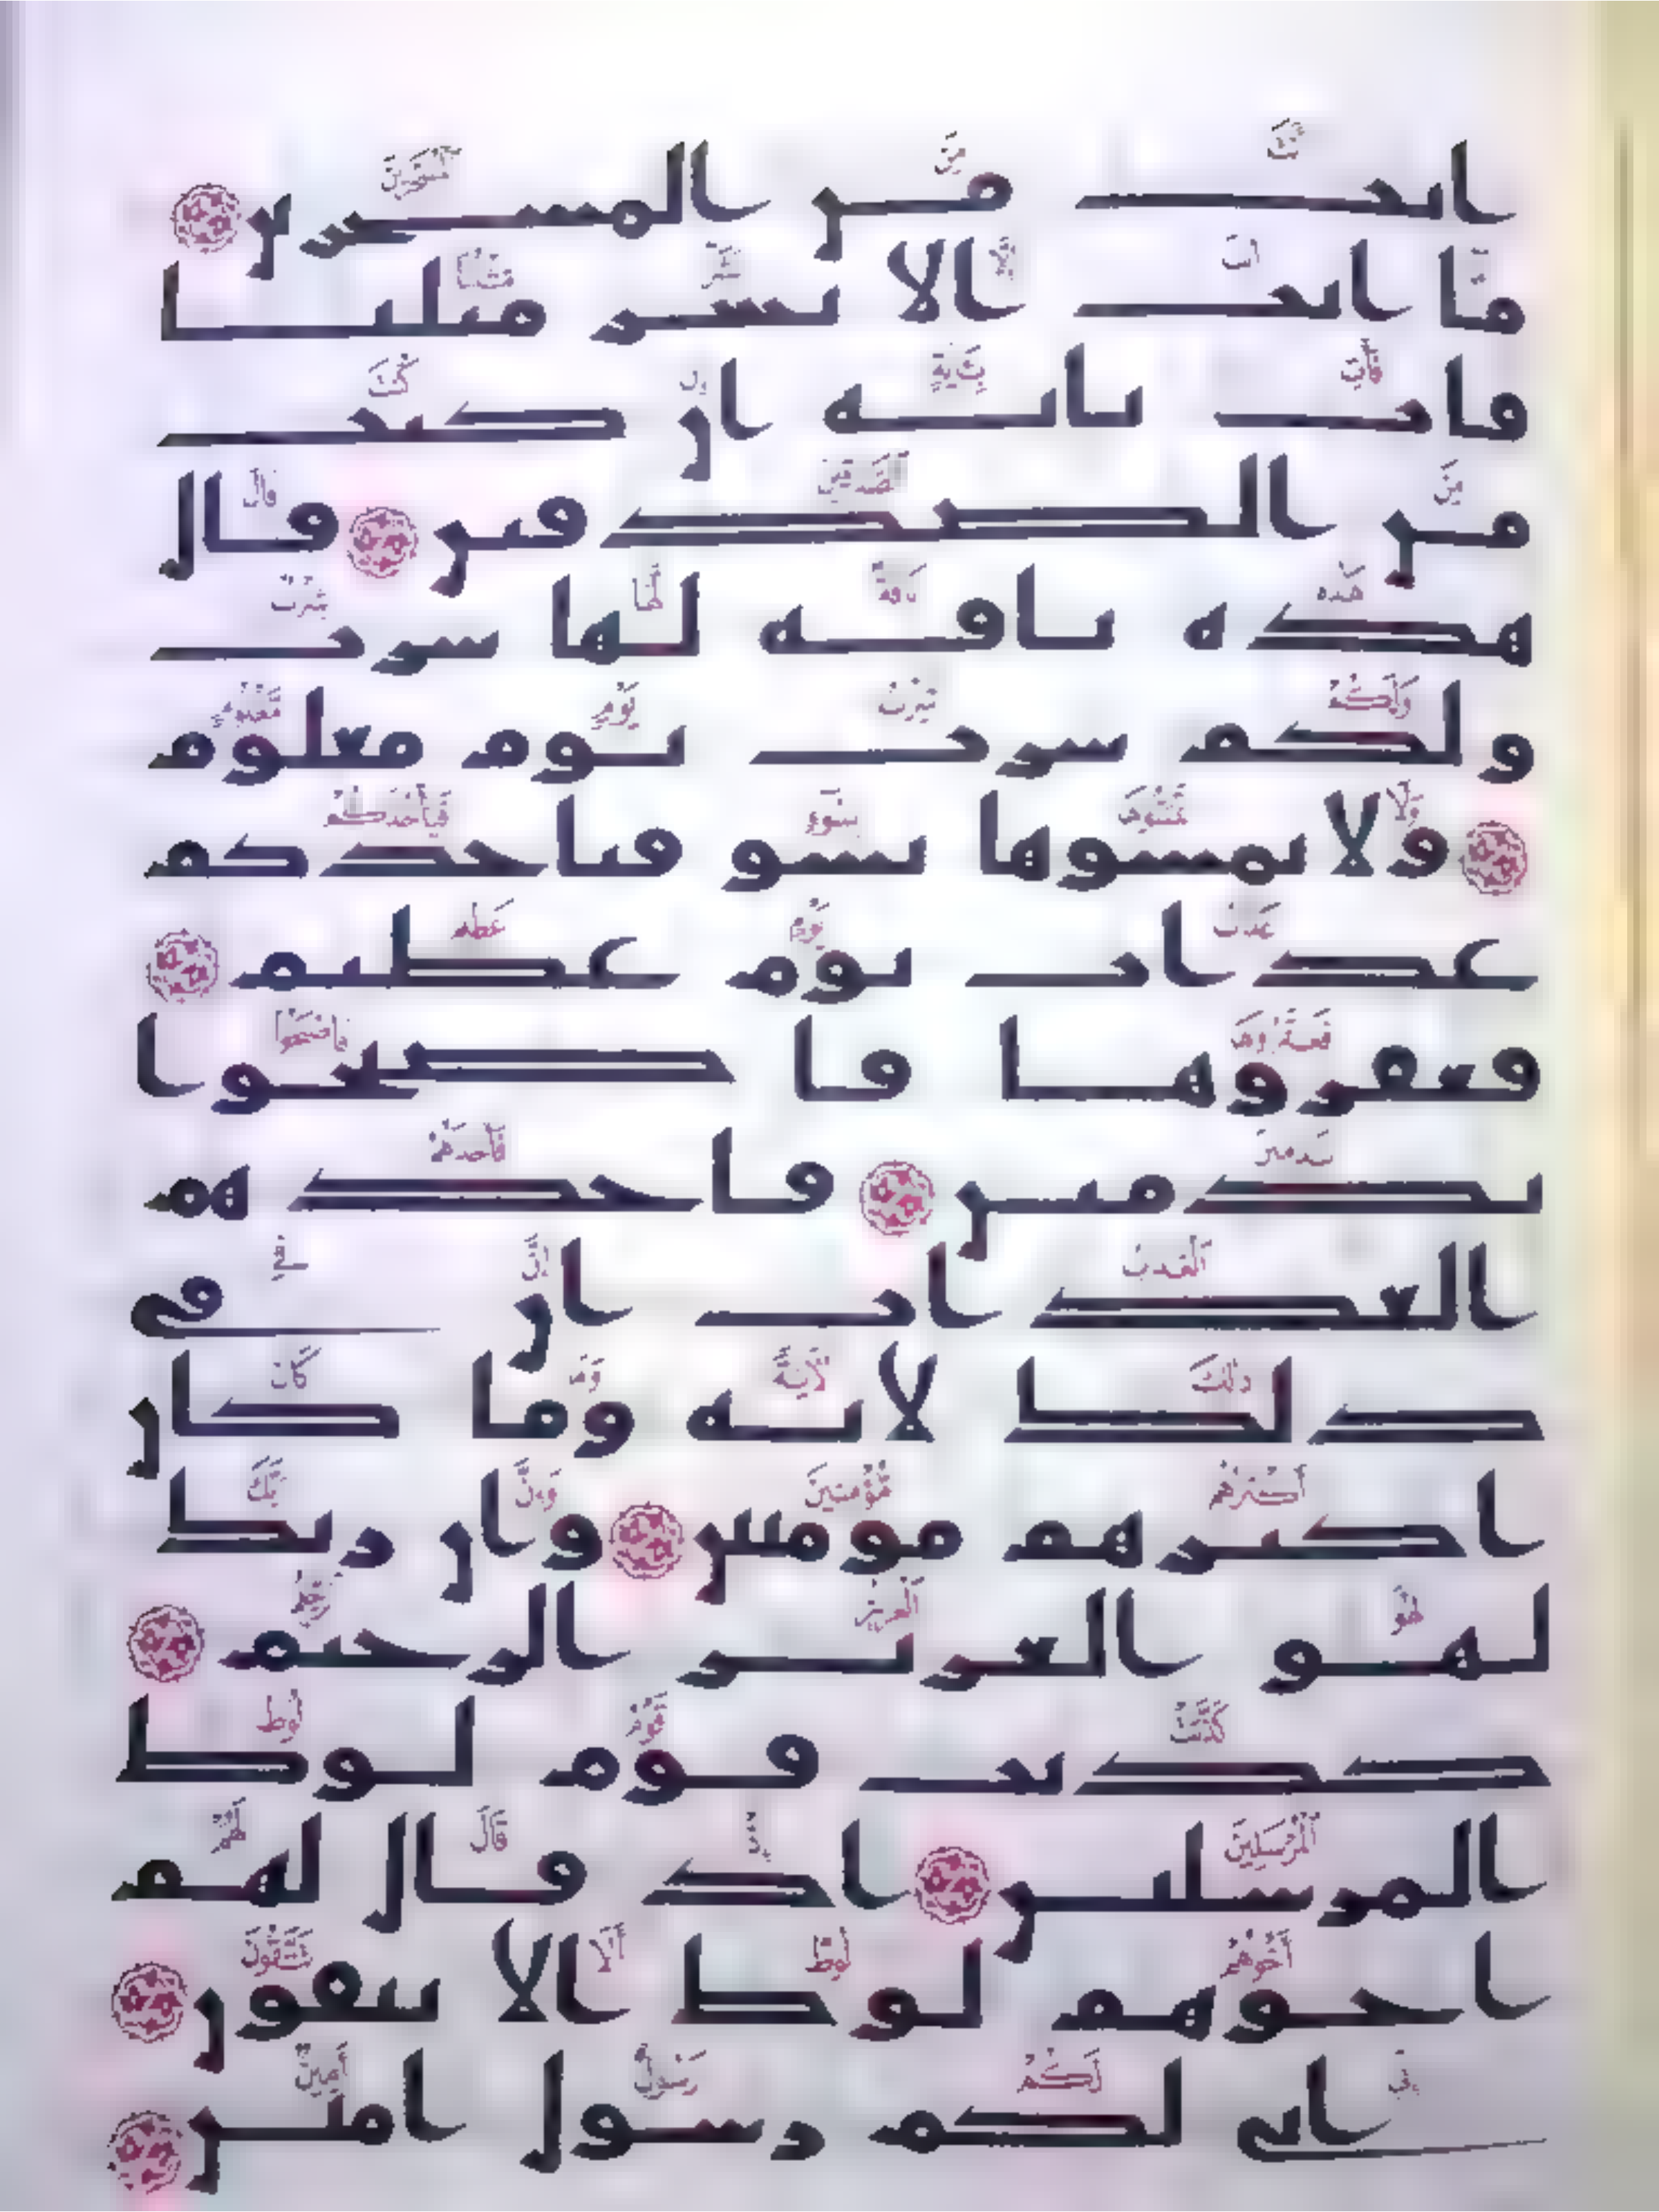 انت من المسحرين
ما انت الا بشر مثلنا
فات باية ان كنت
من الصدقين قال
هذه ناقة لها شرب
ولكم شرب يوم معلوم
ولا تمسوها بسو فياخذكم
عذاب يوم عظيم
فعقروها فاصبحوا
ندمين فاخذهم
العذاب ان في
ذلك لاية وما كان
اكثرهم مومنين وان ربك
لهو العزيز الرحيم
كذبت قوم لوط
المرسلين اذ قال لهم
اخوهم لوط الا تتقون
اني لكم رسول امين